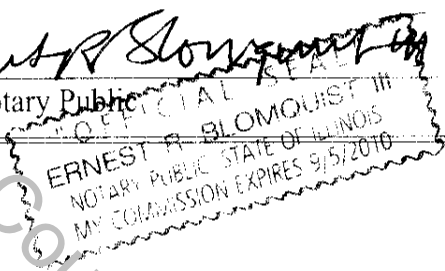 Notary Public
"OFFICIAL SEAL
ERNEST R. BLOMQUIST III
NOTARY PUBLIC STATE OF ILLINOIS
MY COMMISSION EXPIRES 9/5/2010
Co